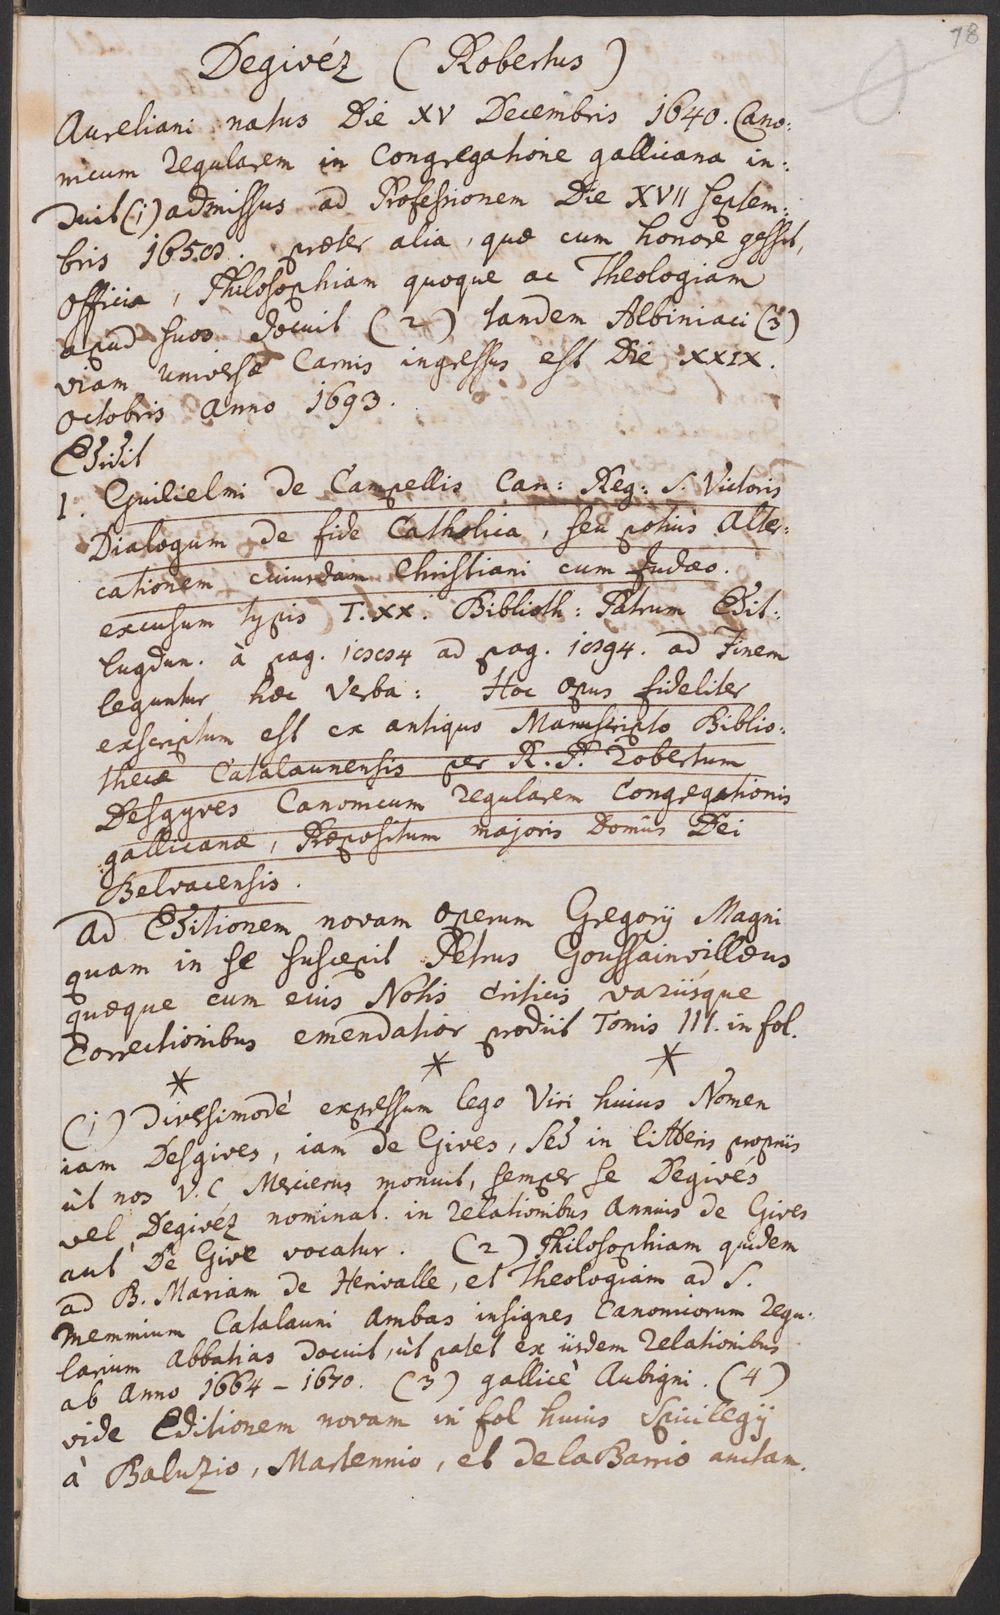 78
Degivéz (Robertus)
Aureliani natus Die XV Decembris 1640. Cano:
nicum regularem in Congregatione gallicana in:
duit (1) admissus ad Professionem Die XVII Septem:
bris . præter alia, quæ cum honore gessit,
officia, Philosophiam quoque ac Theologiam
apud suos docuit (2) tandem Albiniaci (3)
viam universæ Carnis ingressus est Die XXIX.
octobris anno 1693.
Edidit
1. Guilielmi de Campellis Can: Reg: S. Victoris
Dialogum de fide Catholica, seu potius Alter:
cationem cuiusdam Christiani cum Judæo.
excusum typis T. XX. Biblioth: Patrum Edit:
Lugdun. à pag. ad pag. ad Finem
leguntur hæc Verba: Hoc opus fideliter
exscriptum est ex antiquo Manuscripto Biblio:
thecæ Catalaunensis per R. P. Robertum
Desgyves Canonicum regularem Congregationis
gallicanæ, Præpositum majoris Domus Dei
Belvacensis.
Ad Editionem novam operum Gregorij Magni
quam in se suscepit Petrus Goussainvillæus
quæque cum eius Notis criticis variisque
Correctionibus emendatior prodiit Tomis III. in fol.
* * *
(1) Diversimodè expressum lego Viri huius Nomen
iam Desgives, iam de Gives, sed in litteris propriis
ùt nos V. C. Mercierus monuit, semper se Degivés
vel Degivéz nominat. in relationibus annuis de Gives
aut De Give vocatur. (2) Philosophiam quidem
ad B. Mariam de Henivalle, et Theologiam ad S.
Memmium Catalauni ambas insignes Canonicorum regu:
larium Abbatias docuit, ùt patet ex iisdem relationibus
ab Anno 1664 - 1670. (3) gallicè Aubigni. (4)
vide Editionem novam in fol huius Spicilegij
à Baluzio, Martennio, et de la Barrio auctam.